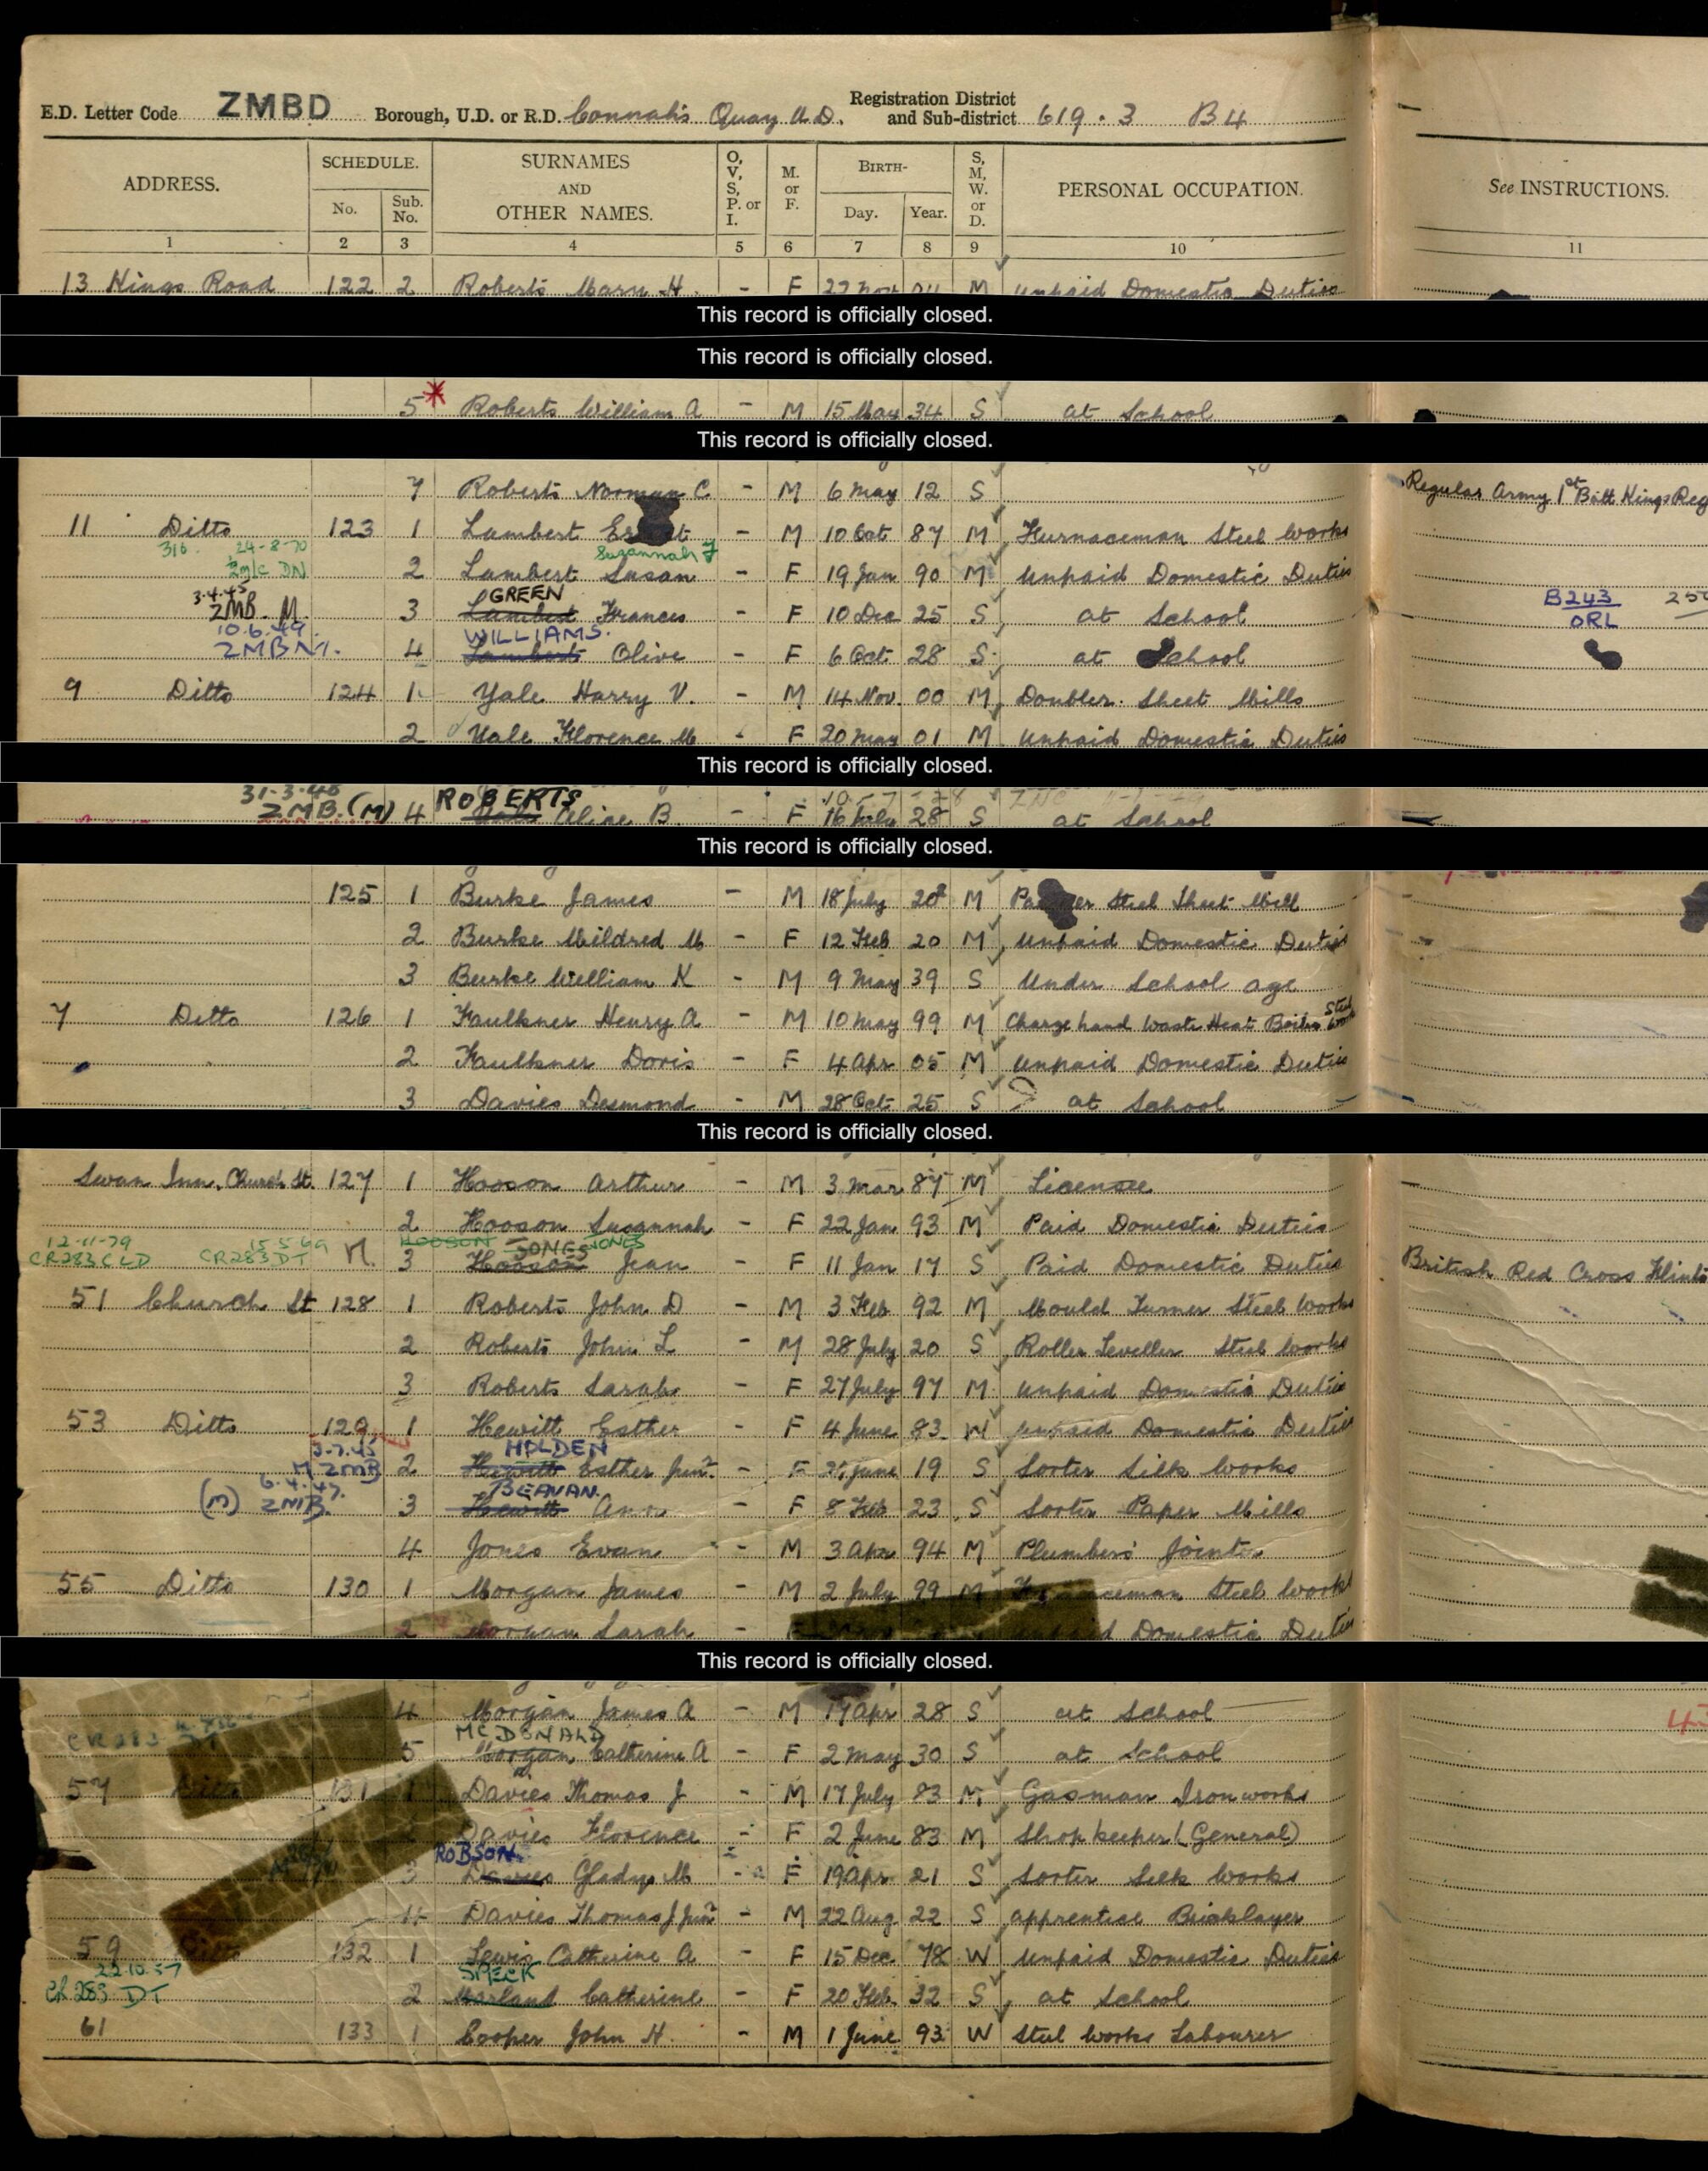 E.D. Letter Code ZMBD Borough, U.D. or R.D. Connah's Quay U.D. Registration District and Sub-district 619.3 B4
ADDRESS. SCHEDULE. SURNAMES AND OTHER NAMES. O, V, S, P. or I. M. or F. BIRTH- S, M, W. or D. PERSONAL OCCUPATION. See INSTRUCTIONS.
No. Sub. No. Day. Year.
1 2 3 4 5 6 7 8 9 10 11
13 Kings Road 122 2 Roberts Mary H. - F M Unpaid Domestic Duties
This record is officially closed.
This record is officially closed.
5 * Roberts William A - M 15 May 34 S at School
This record is officially closed.
7 Roberts Norman C - M 6 May 12 S Regular Army 1st Batt Kings Reg
11 Ditto 123 1 Lambert - M 10 Oct 87 M Furnaceman Steel Works
316. 24-8-70 Suzannah J
DN
2 Lambert Susan - F 19 Jan 90 M Unpaid Domestic Duties
3.4.45 GREEN
ZMB M 3 Lambert Frances - F 10 Dec 25 S at School B243
ORL
10.6.49 WILLIAMS.
ZMB M. 4 Lambert Olive - F 6 Oct 28 S at School
9 Ditto 124 1 Yale Harry V. - M 14 Nov. 00 M Doubler Sheet Mills
2 Yale Florence M - F 20 May 01 M Unpaid Domestic Duties
This record is officially closed.
31-3-48 ROBERTS
ZMB. (M) 4 Yale Alice B. - F 16 July 28 S at School
This record is officially closed.
125 1 Burke James - M 18 July 20 M Steel Sheet Mill
2 Burke Mildred M - F 12 Feb 20 M Unpaid Domestic Duties
3 Burke William K - M 9 May 39 S Under School age
7 Ditto 126 1 Faulkner Henry A - M 10 May 99 M Chargehand Waste Heat Boiler Steel Works
2 Faulkner Doris - F 4 Apr 05 M Unpaid Domestic Duties
3 Davies Desmond - M 28 Oct 25 S at School
This record is officially closed.
Swan Inn, Church St. 127 1 Hooson Arthur - M 3 Mar 87 M Licensee
2 Hooson Susannah - F 22 Jan 93 M Paid Domestic Duties
12-11-79 15.5.69 HOOSON JONES JONES
CR283 CLD CR283 DT M. 3 Hooson Jean - F 11 Jan 17 S Paid Domestic Duties British Red Cross Flints
51 Church St 128 1 Roberts John D - M 3 Feb 92 M Mould Turner Steel Works
2 Roberts John L - M 28 July 20 S Roller Leveller Steel Works
3 Roberts Sarah - F 27 July 97 M Unpaid Domestic Duties
53 Ditto 129 1 Hewitt Esther - F 4 June 83 W Unpaid Domestic Duties
3.7.45 HOLDEN
M ZMB 2 Hewitt Esther Junr. - F June 19 S Sorter Silk Works
6.4.47. BEAVAN.
(M) ZMB. 3 Hewitt Ann - F 8 Feb 23 S Sorter Paper Mills
4 Jones Evan - M 3 Apr 94 M Plumbers Jointer
55 Ditto 130 1 Morgan James - M 2 July 99 M Furnaceman Steel Works
2 Morgan Sarah - Unpaid Domestic Duties
This record is officially closed.
4 Morgan James A - M 17 Apr 28 S at School
CR 283 DT MCDONALD
5 Morgan Catherine A - F 2 May 30 S at School
57 Ditto 131 1 Davies Thomas J - M 17 July 83 M Gasman Ironworks
Davies Florence - F 2 June 83 M Shopkeeper (General)
ROBSON.
3 Davies Gladys M - F 19 Apr 21 S Sorter Silk Works
4 Davies Thomas J Junr - M 22 Aug 22 S Apprentice Bricklayer
59 Ditto 132 1 Lewis Catherine A - F 15 Dec 78 W Unpaid Domestic Duties
22.10.57 SPECK
CR 283 DT 2 Marland Catherine - F 20 Feb 32 S at School
61 133 1 Cooper John H. - M 1 June 93 W Steel Works Labourer